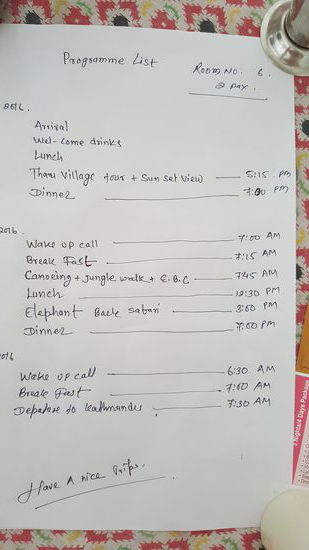 Programme List
Room No. 6.
2 pax.
2016.
Arrival
Wel-come drinks
Lunch
Tharu Village tour + Sun set view 5:15 PM
Dinner 7:00 PM
2016.
Wake up call 7:00 AM
Break Fast 7:15 AM
Canoeing + Jungle walk + E.B.C 7:45 AM
Lunch 12:30 PM
Elephant Back safari 3:00 PM
Dinner 7:00 PM
016
Wake up call 6:30 AM
Break Fast 7:00 AM
Depature to Kathmandu 7:30 AM
Have A nice Trips.
Nights/4 Days Package